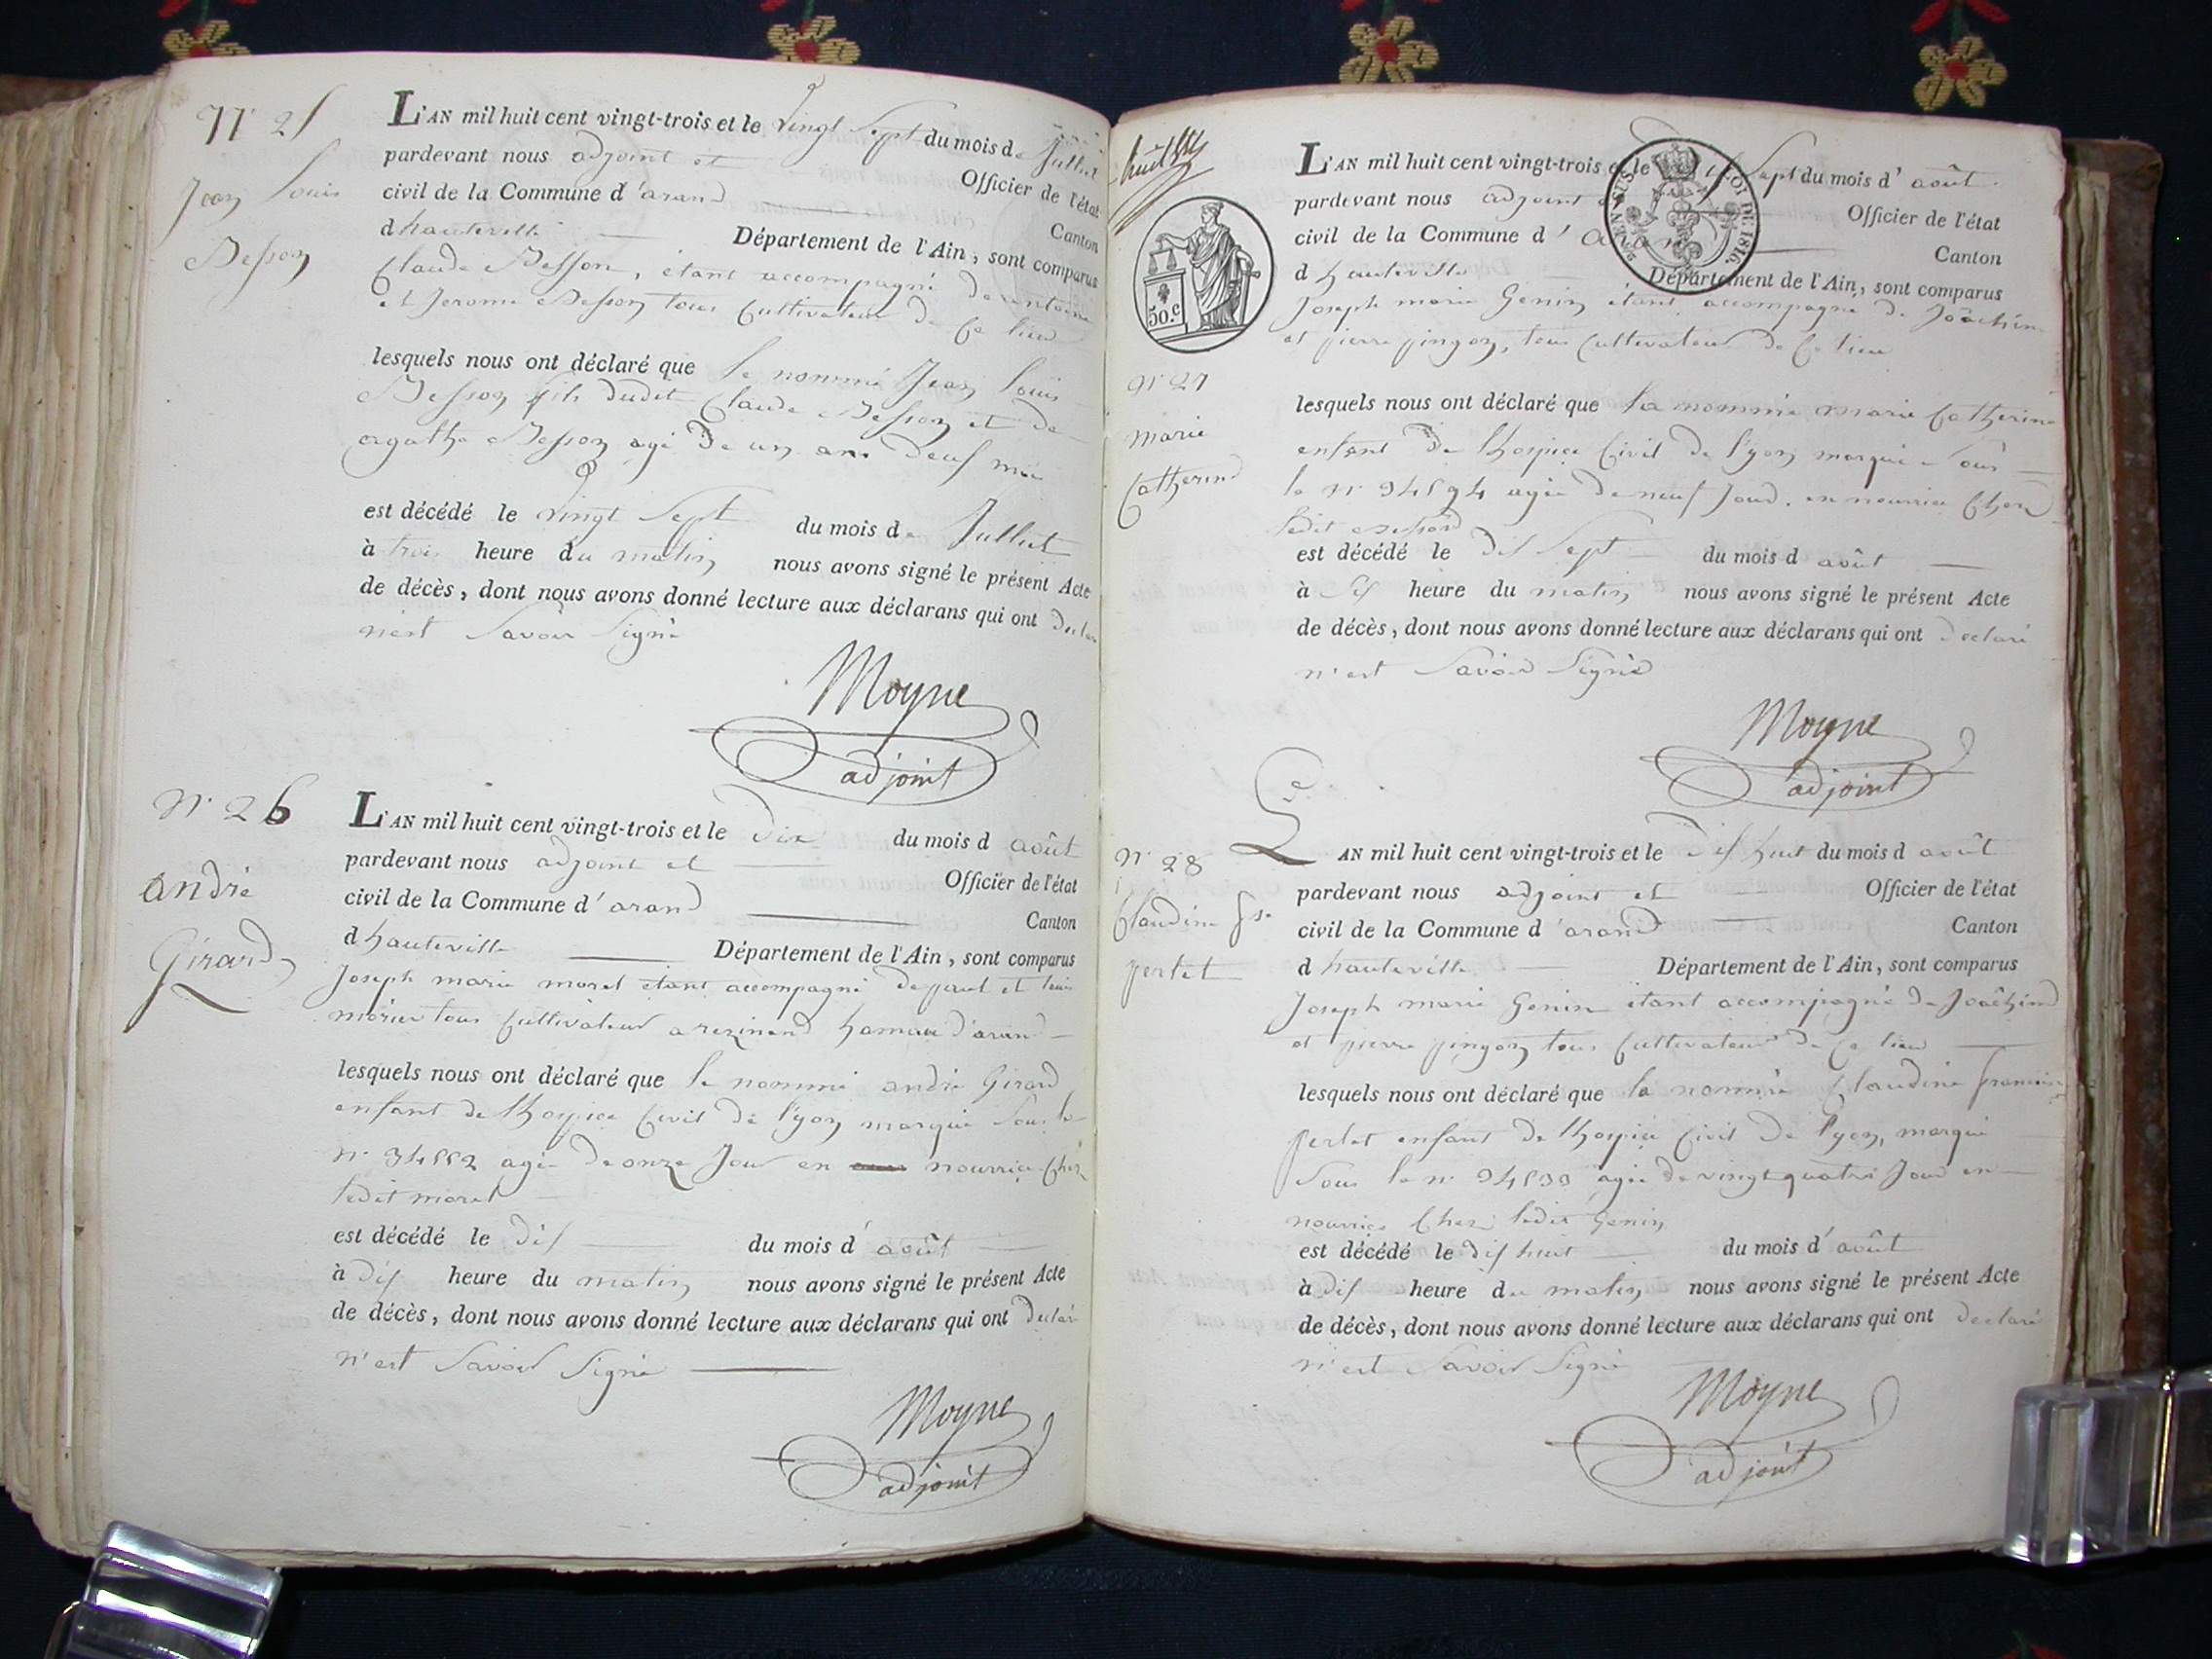 N° 25
Jean Louis
Besson
L'AN mil huit cent vingt-trois et le vingt Sept du mois de Jullet
pardevant nous adjoint et Officier de l'état
civil de la Commune d'arand Canton
d hauteville Département de l'Ain, sont comparus
Claude Besson, étant accompagné de antoine
et Jerome Besson tous Cultivateur de Ce lieu
lesquels nous ont déclaré que le nommé Jean Louis
Besson fils dudit Claude Besson et de
agathe Besson agé de un an deuf moi
est décédé le vingt Sept du mois de Jullet
à trois heure du matin nous avons signé le présent Acte
de décès, dont nous avons donné lecture aux déclarans qui ont declaré
n'est Savoir Signé
Moyne
adjoint
N° 26
andré
Girard
L'AN mil huit cent vingt-trois et le dix du mois d août
pardevant nous adjoint et Officier de l'état
civil de la Commune d'arand Canton
d hauteville Département de l'Ain, sont comparus
Joseph marie moret étant accompagné de paul et
tous Cultivateur a rezinand hamau d'arand
lesquels nous ont déclaré que le nommé andré Girard
enfant de lhospice Civil de lyon marqué Sous le
n° 34552 agée de onze Jour en nourrice Chez
ledit moret
est décédé le dis du mois d'août
à dis heure du matin nous avons signé le présent Acte
de décès, dont nous avons donné lecture aux déclarans qui ont declaré
n'est Savoir Signé
Moyne
adjoint
50.c
LOI DE 1816.
N° 27
marie
Catherine
L'AN mil huit cent vingt-trois et le dis Sept du mois d'août
pardevant nous adjoint et Officier de l'état
civil de la Commune d'arand Canton
d hauteville Département de l'Ain, sont comparus
Joseph marie Genin étant accompagné de Joachim
et pierre pingon, tous Cultivateur de Ce lieu
lesquels nous ont déclaré que la nommée marie Catherine
enfant de lhospice Civil de lyon marquée Sous
le n° 34594 agée de neuf Jour en nourrice Chez
ledit
est décédé le dis Sept du mois d août
à Sis heure du matin nous avons signé le présent Acte
de décès, dont nous avons donné lecture aux déclarans qui ont declaré
n'est Savoir Signé
Moyne
adjoint
N° 28
Claudine fse
pertet
L AN mil huit cent vingt-trois et le dis huit du mois d août
pardevant nous adjoint et Officier de l'état
civil de la Commune d'arand Canton
d hauteville Département de l'Ain, sont comparus
Joseph marie Genin étant accompagné de Joachim
et pierre pingon tous Cultivateur de Ce lieu
lesquels nous ont déclaré que la nommée Claudine francoise
pertet enfant de lhospice Civil de lyon, marqué
Sous le n° 34533 agée de vingt quatre Jour en
nourrice Chez ledit Genin
est décédé le dis huit du mois d'août
à dis heure du matin nous avons signé le présent Acte
de décès, dont nous avons donné lecture aux déclarans qui ont declaré
n'est Savoir Signé
Moyne
adjoint